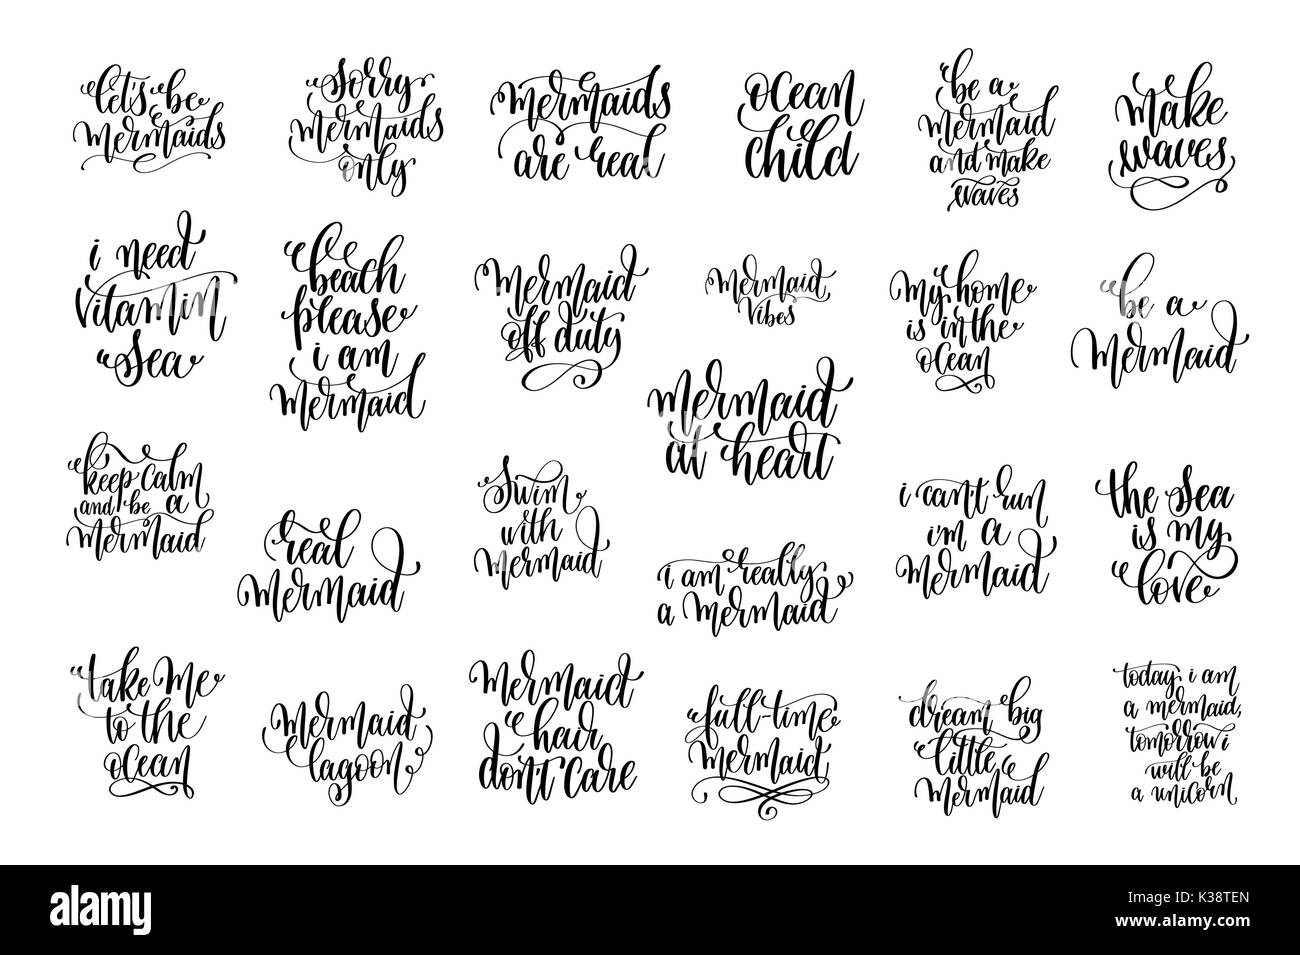 let's be
mermaids
sorry
mermaids
only
mermaids
are real
ocean
child
be a
mermaid
and make
waves
make
waves
i need
vitamin
sea
beach
please
i am
mermaid
mermaid
off duty
mermaid
vibes
my home
is in the
ocean
be a
mermaid
mermaid
at heart
keep calm
and be a
mermaid
real
mermaid
swim
with
mermaid
i am really
a mermaid
i can't run
i'm a
mermaid
the sea
is my
love
take me
to the
ocean
mermaid
lagoon
mermaid
hair
don't care
full-time
mermaid
dream big
little
mermaid
today i am
a mermaid,
tomorrow i
will be
a unicorn
alamy stock photo
K38TEN
www.alamy.com